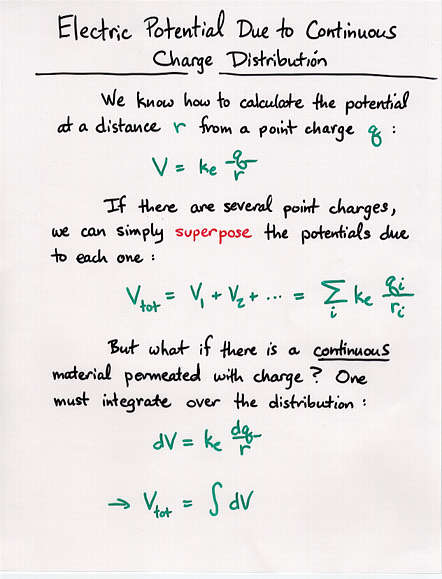 Electric Potential Due to Continuous
Charge Distribution
We know how to calculate the potential
at a distance r from a point charge q :
V = ke q/r
If there are several point charges,
we can simply superpose the potentials due
to each one :
Vtot = V1 + V2 + ... = ∑i ke qi/ri
But what if there is a continuous
material permeated with charge? One
must integrate over the distribution :
dV = ke dq/r
→ Vtot = ∫ dV